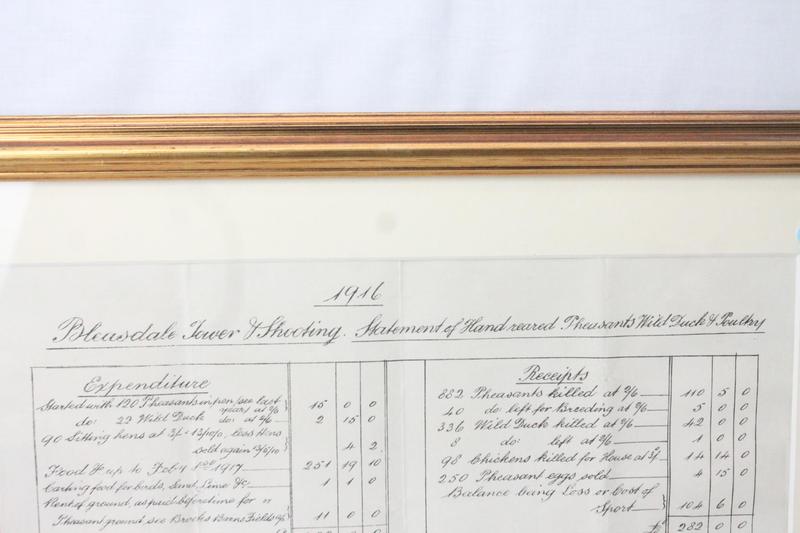 1916
Bleasdale Tower & Shooting. Statement of Hand reared Pheasants Wild Duck & Poultry
Expenditure
Started with 120 Pheasants in pen (see last year) at 2/6 15 0 0
do: 22 Wild Duck do: at 2/6 2 15 0
90 Sitting hens at 3/- 13/10/0, less Hens
sold again 4 2
Food &c up to Feby 1st 1917 251 19 10
Carting food for birds, sand, Lime &c: 1 1 0
Rent of ground, as paid before time for
Pheasant ground, see Brooks Barns Fields &c 11 0 0
Receipts
882 Pheasants killed at 2/6 110 5 0
40 do: left for Breeding at 2/6 5 0 0
336 Wild Duck killed at 2/6 42 0 0
8 do: left at 2/6 1 0 0
98 Chickens killed for House at 3/- 14 14 0
250 Pheasant eggs sold 4 15 0
Balance being Loss or Cost of
Sport 104 6 0
£ 282 0 0